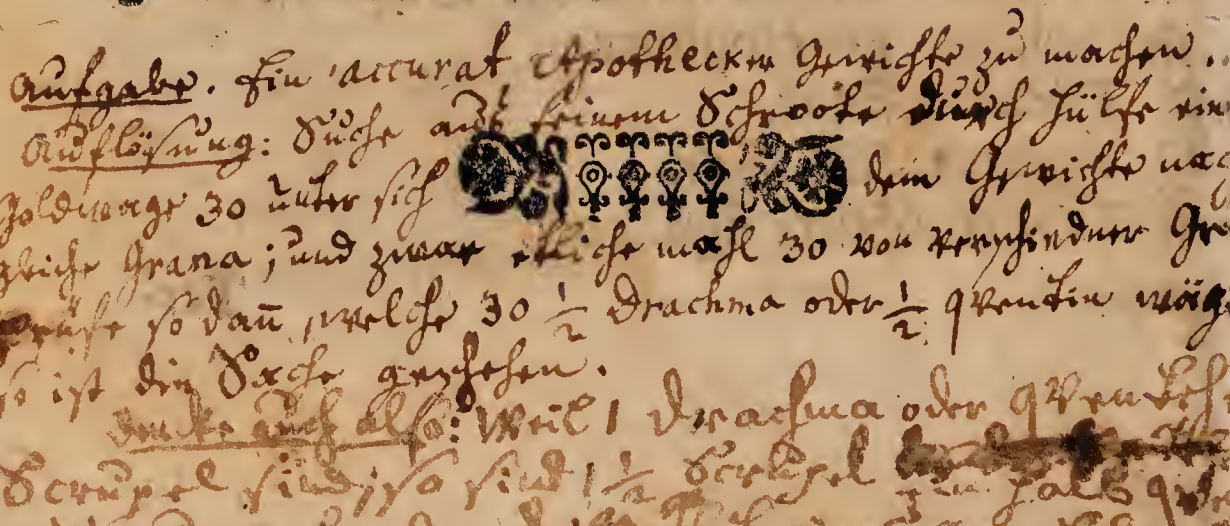 Aufgabe. Ein accurat Apothecker Gewichte zu machen.
Auflösung: Suche auß feinem Schroote durch Hülfe ein
Goldwage 30 unter sich dem Gewichte nach
gleiche Grana; und zwar etliche mahl 30 von verschiedner Grö
prüfe so dañ, welche 30 1/2 Drachma oder 1/2 qventin wäge
so ist die Sache geschehen.
also: Weil 1 Drachma oder
Scrupel sind; so sind 1 1/2 Scrupel halb